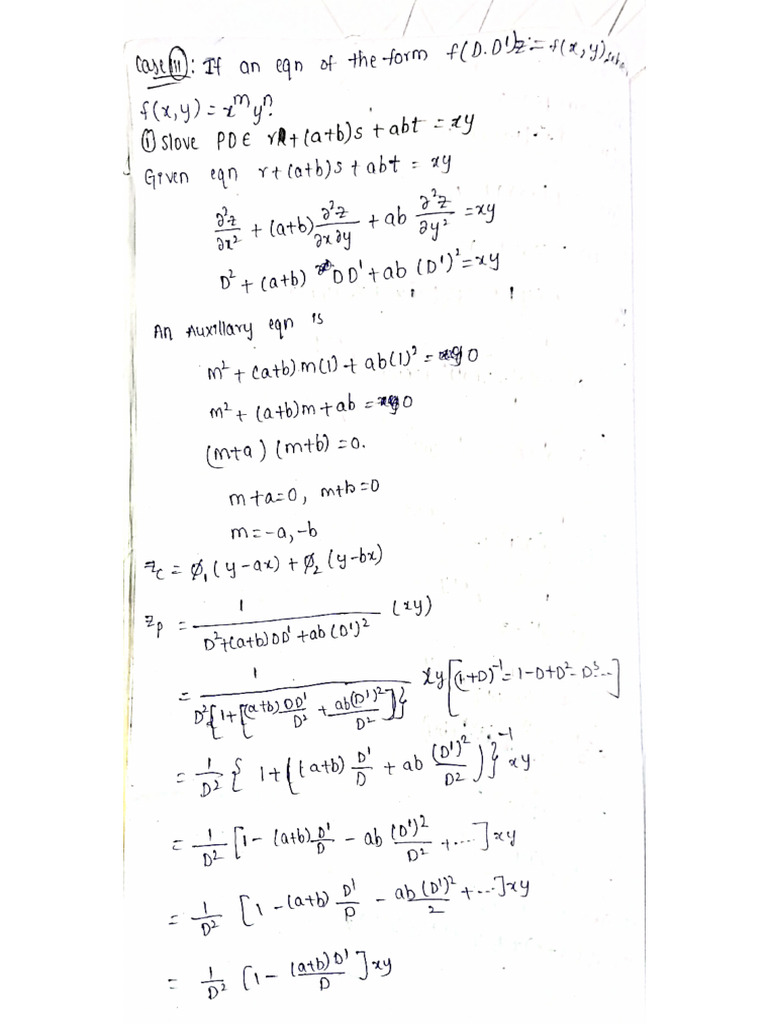 Case (II): If an eqn of the form f(D.D')z = f(x,y)
f(x,y) = x^m y^n.
① Slove PDE r+(a+b)s + abt = xy
Given eqn r+(a+b)s + abt = xy
∂²z/∂x² + (a+b) ∂²z/∂x∂y + ab ∂²z/∂y² = xy
D² + (a+b) DD' + ab (D')² = xy
An Auxillary eqn is
m² + (a+b) m(1) + ab(1)² = 0
m² + (a+b)m + ab = 0
(m+a) (m+b) = 0.
m+a=0, m+b=0
m = -a, -b
z_c = Ø₁(y-ax) + Ø₂(y-bx)
z_p = 1/(D²+(a+b)DD'+ab(D')²) (xy)
= 1/(D²{1+[(a+b)DD'/D² + ab(D')²/D²]}) xy [(1+D)⁻¹ = 1-D+D²-D³...]
= 1/D² { 1+((a+b) D'/D + ab (D')²/D²)}⁻¹ xy
= 1/D² [1-(a+b)D'/D - ab (D')²/D² + ....] xy
= 1/D² [1-(a+b) D'/D - ab(D')²/2 + ...] xy
= 1/D² [1- (a+b)D'/D ] xy